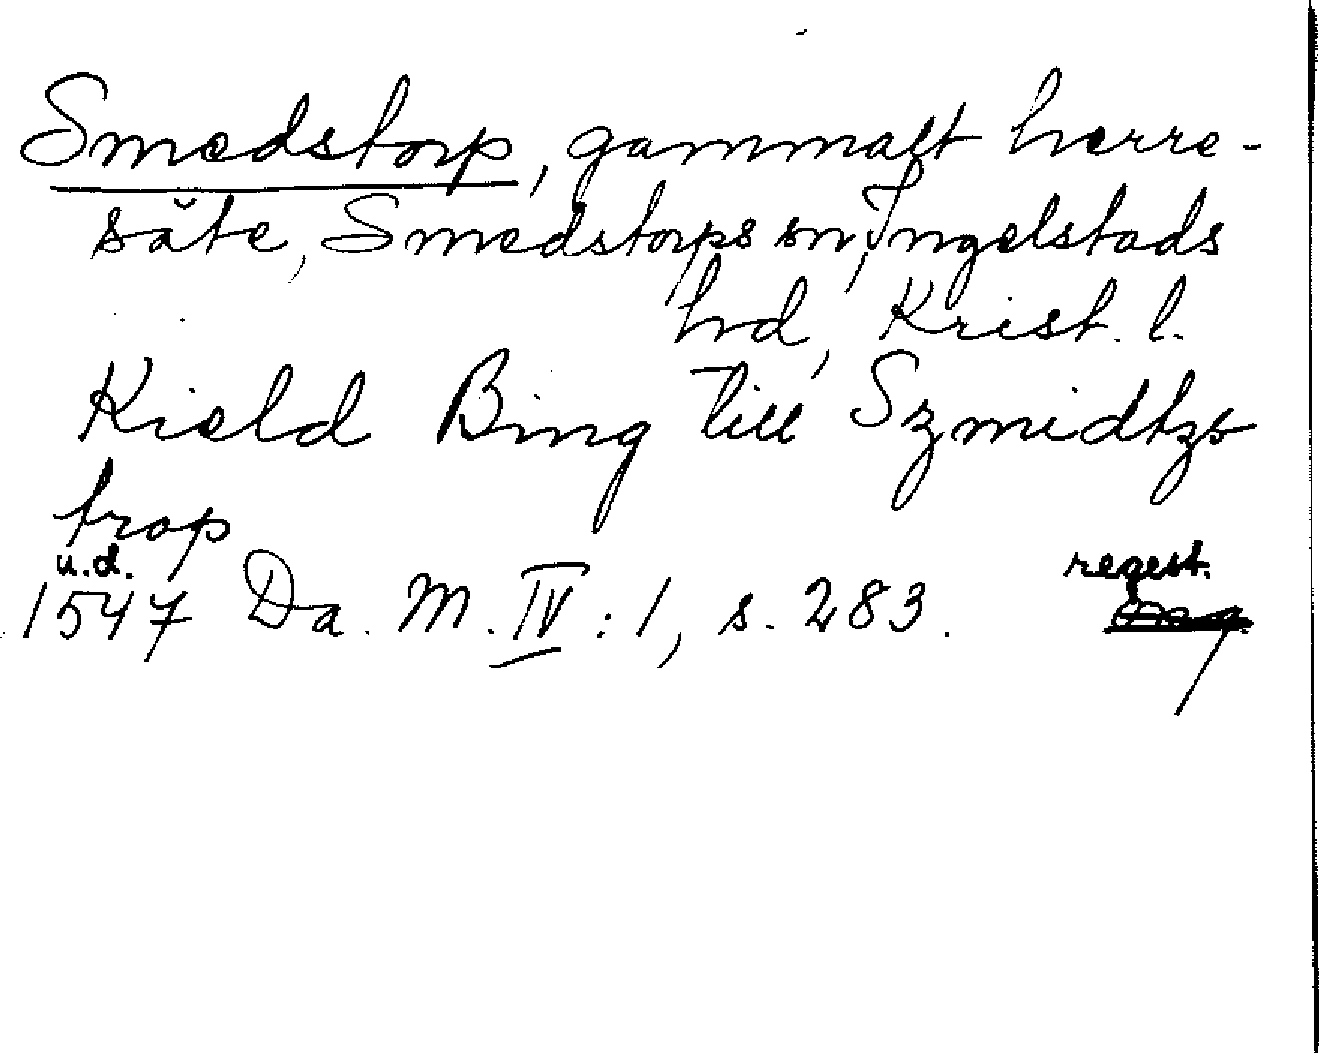 Smedstorp, gammalt herre-
säte, Smedstorps sn, Ingelstads
hd, Krist. l.
Kield Bing till Szmidtzs
trop
u.d. regest.
1547 Da. M. IV:1, s. 283.